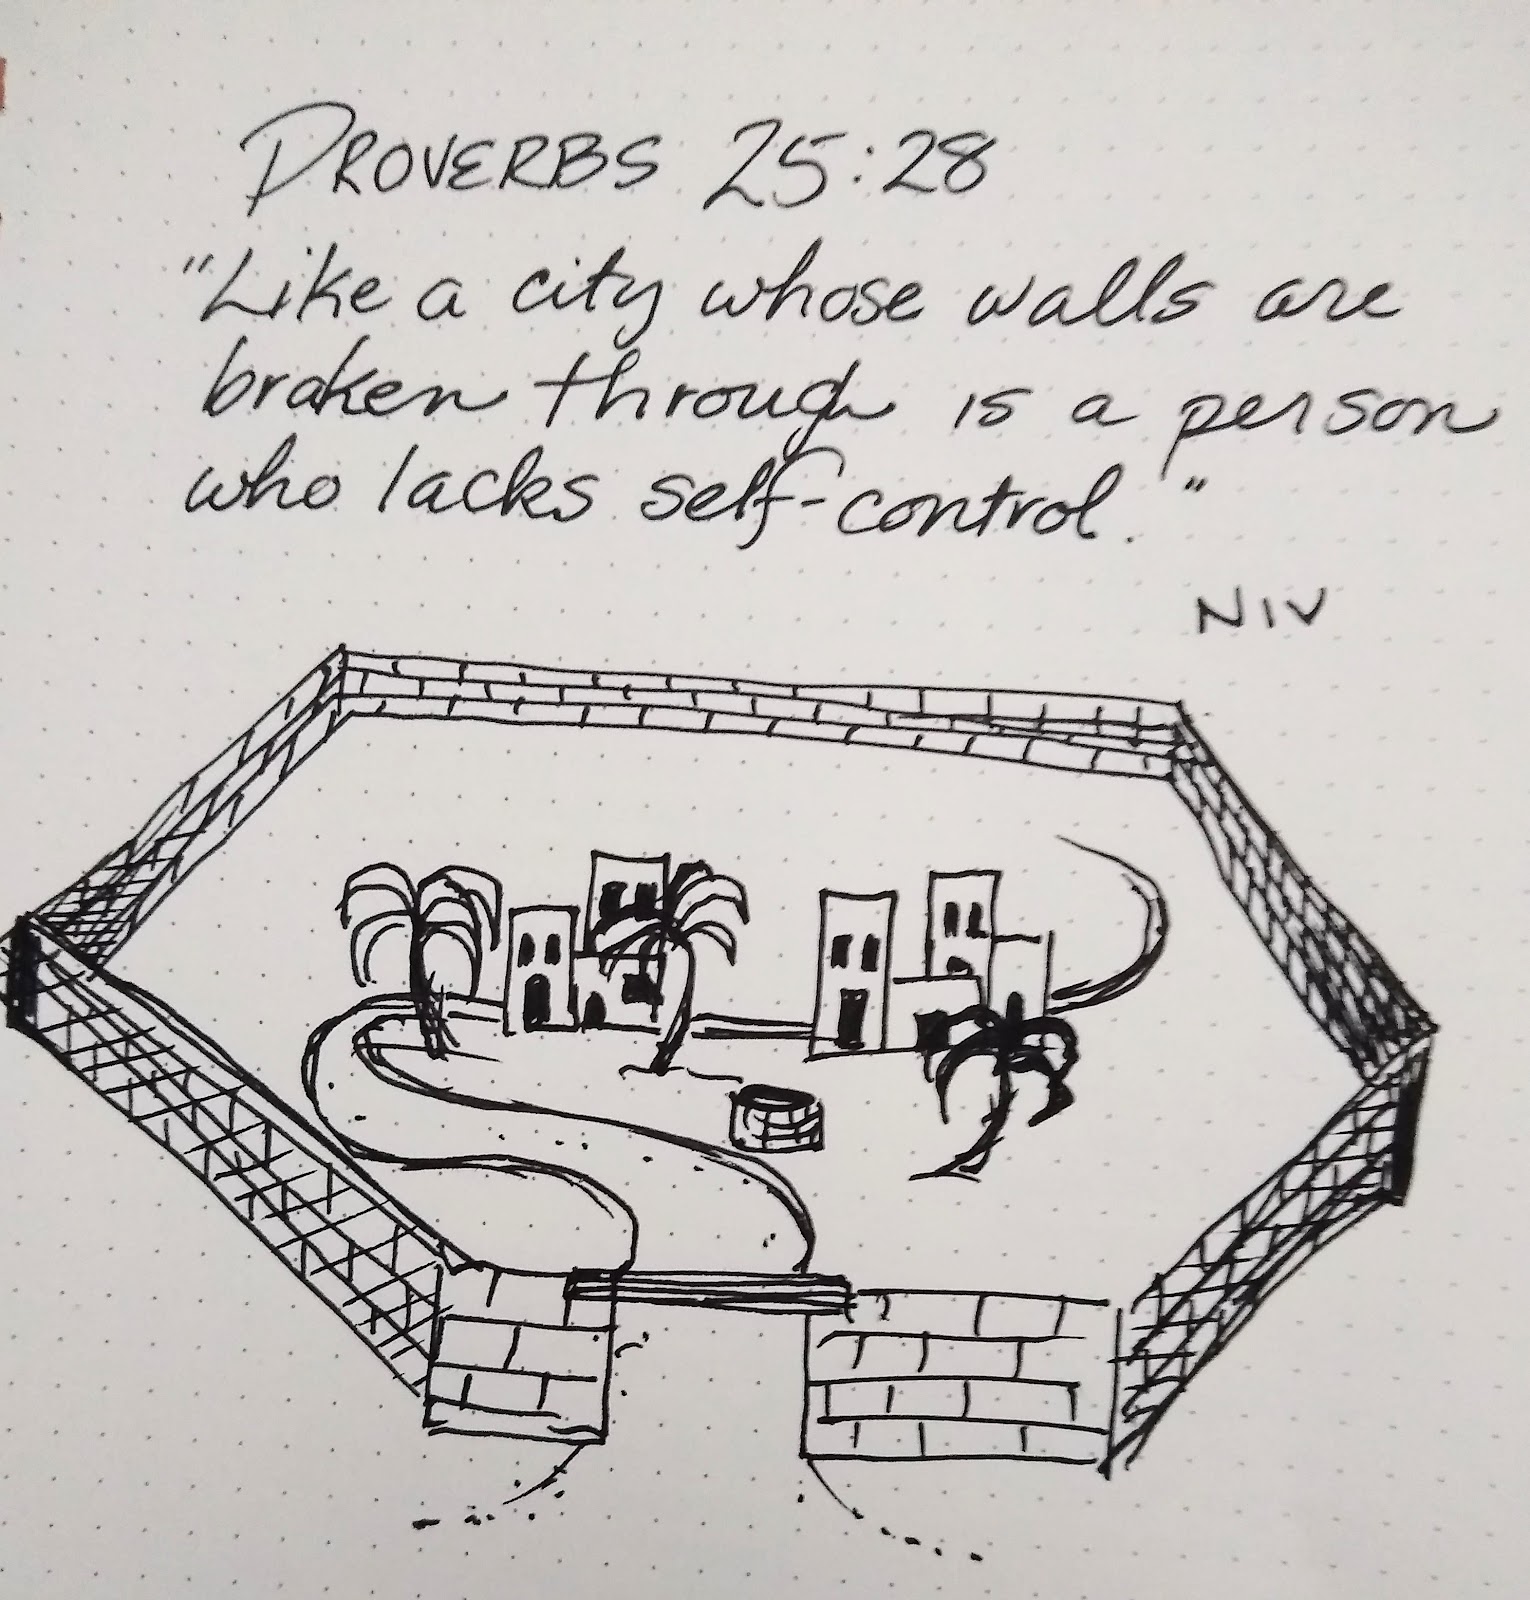 PROVERBS 25:28
"Like a city whose walls are
braken through is a person
who lacks self-control."
NIV